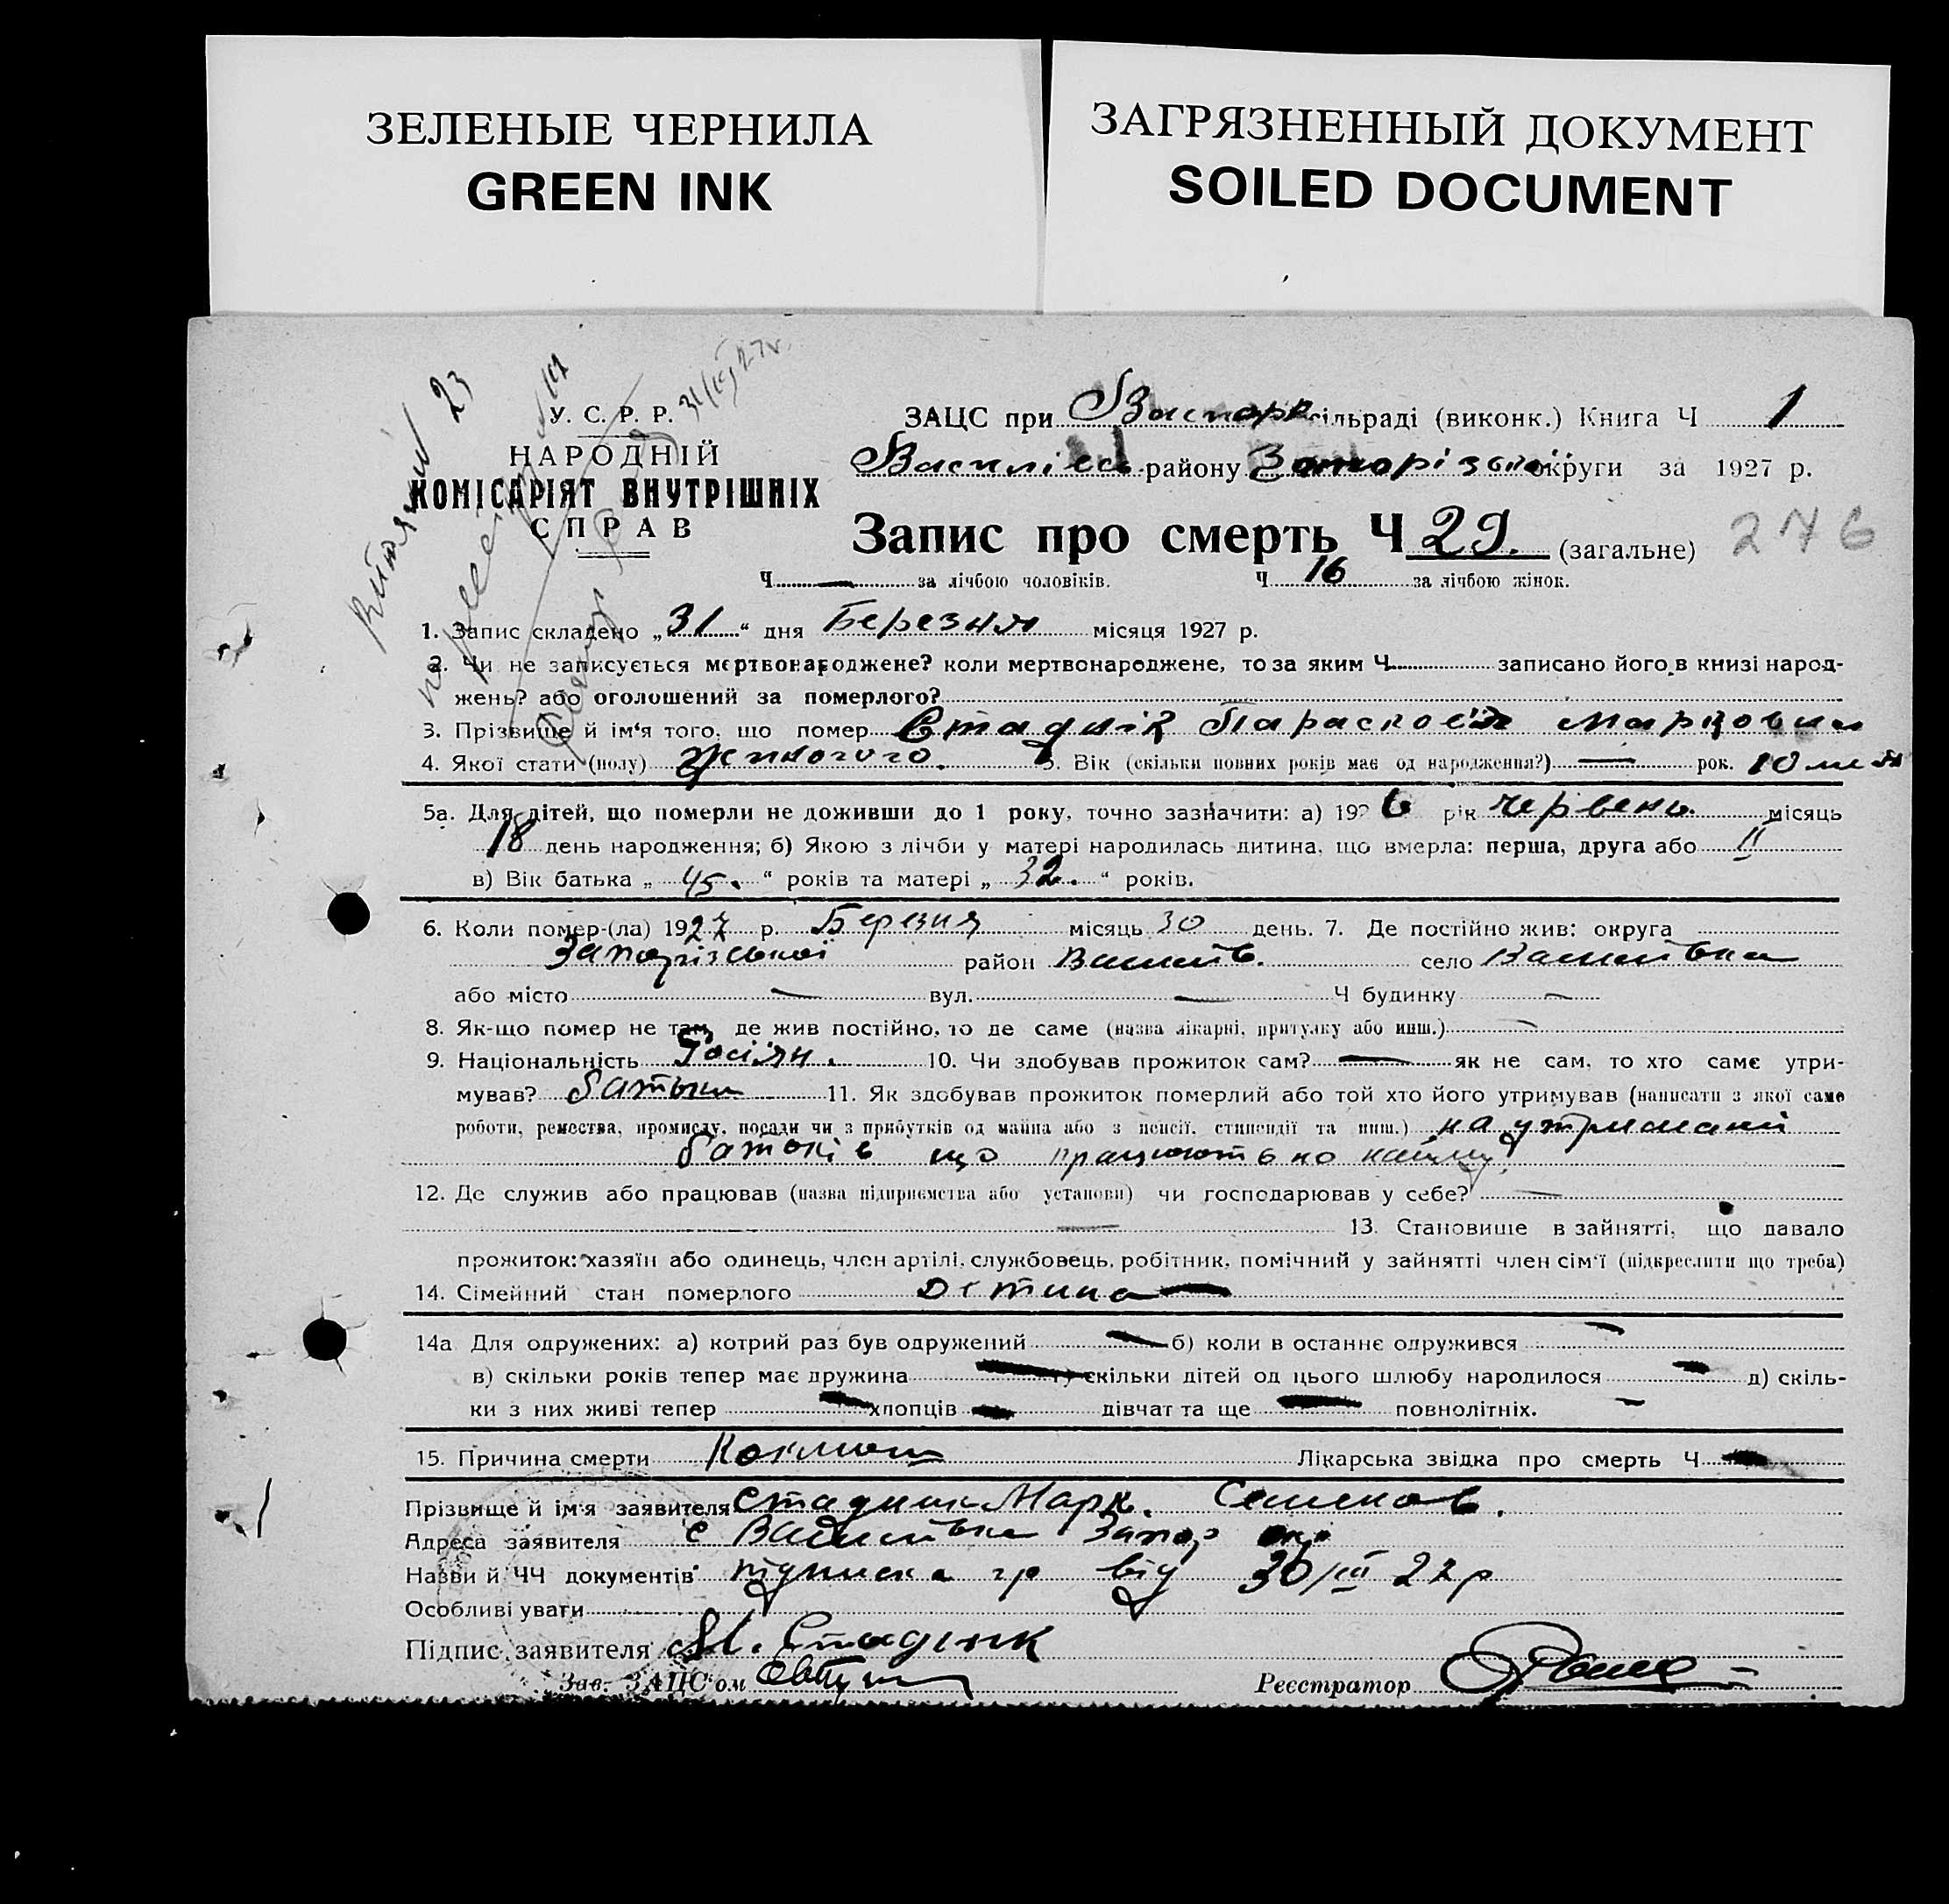 ЗЕЛЕНЫЕ ЧЕРНИЛА
GREEN INK
ЗАГРЯЗНЕННЫЙ ДОКУМЕНТ
SOILED DOCUMENT
23
31/III 27 г.
У. С. Р. Р.
НАРОДНІЙ
КОМІСАРІЯТ ВНУТРІШНІХ
СПРАВ
ЗАЦС при сільраді (виконк.) Книга Ч 1
Василівсь. району Запорізької округи за 1927 р.
Запис про смерть Ч 29. (загальне) 276
Ч — за лічбою чоловіків. Ч 16 за лічбою жінок.
1. Запис складено „31“ дня Березня місяця 1927 р.
2. Чи не записується мертвонароджене? коли мертвонароджене, то за яким Ч записано його в книзі народ-
жень? або оголошений за померлого?
3. Прізвище й ім'я того, що помер Стаднік Парасковія Марковна
4. Якої стати (полу) Жиночого. 5. Вік (скільки повних років має од народження?) — рок. 10 ме
5а. Для дітей, що померли не доживши до 1 року, точно зазначити: а) 1926 рік червень місяць
18 день народження; б) Якою з лічби у матері народилась дитина, що вмерла: перша, друга або II
в) Вік батька „ 45. “ років та матері „ 32. “ років.
6. Коли помер-(ла) 1927 р. Березня місяць 30 день. 7. Де постійно жив: округа
Запорізської район Василів. село Василівка
або місто — вул. — Ч будинку —
8. Як-що помер не там, де жив постійно, то де саме (назва лікарні, притулку або инш.) —
9. Національність Росіян. 10. Чи здобував прожиток сам? — як не сам, то хто саме утри-
мував? батьки 11. Як здобував прожиток померлий або той хто його утримував (написати з якої саме
роботи, ремества, промислу, посади чи з прибутків од майна або з пенсії, стипендії та инш.) на утриманні
батьків що працюють по найму.
12. Де служив або працював (назва підприємства або установи) чи господарював у себе? —
— 13. Становище в зайнятті, що давало
прожиток: хазяїн або одинець, член артілі, службовець, робітник, помічний у зайнятті член сім'ї (підкреслити що треба)
14. Сімейний стан померлого детина —
14а Для одружених: а) котрий раз був одружений — б) коли в останнє одружився —
в) скільки років тепер має дружина — г) скільки дітей од цього шлюбу народилося — д) скіль-
ки з них живі тепер — хлопців — дівчат та ще — повнолітніх. —
15. Причина смерти Коклюш Лікарська звідка про смерть Ч —
Прізвище й ім'я заявителя Стадник Марк. Семенов.
Адреса заявителя с Василівка Запор окр
Назви й ЧЧ документів підписка гр від 30/III 27 р
Особливі уваги
Підпис заявителя М. Стаднік
Зав. ЗАЦС'ом Реєстратор